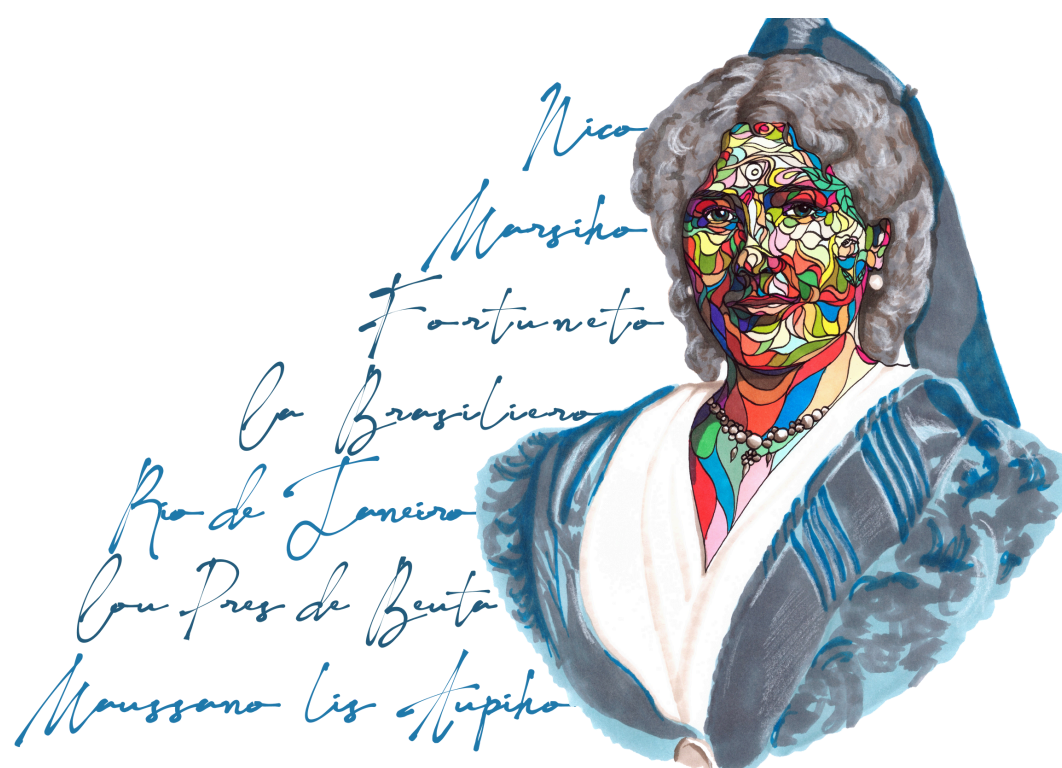 Nico
Marsiho
Fortuneto
la Brasiliero
Rio de Janeiro
lou Pres de Beuta
Maussano lis Aupiho